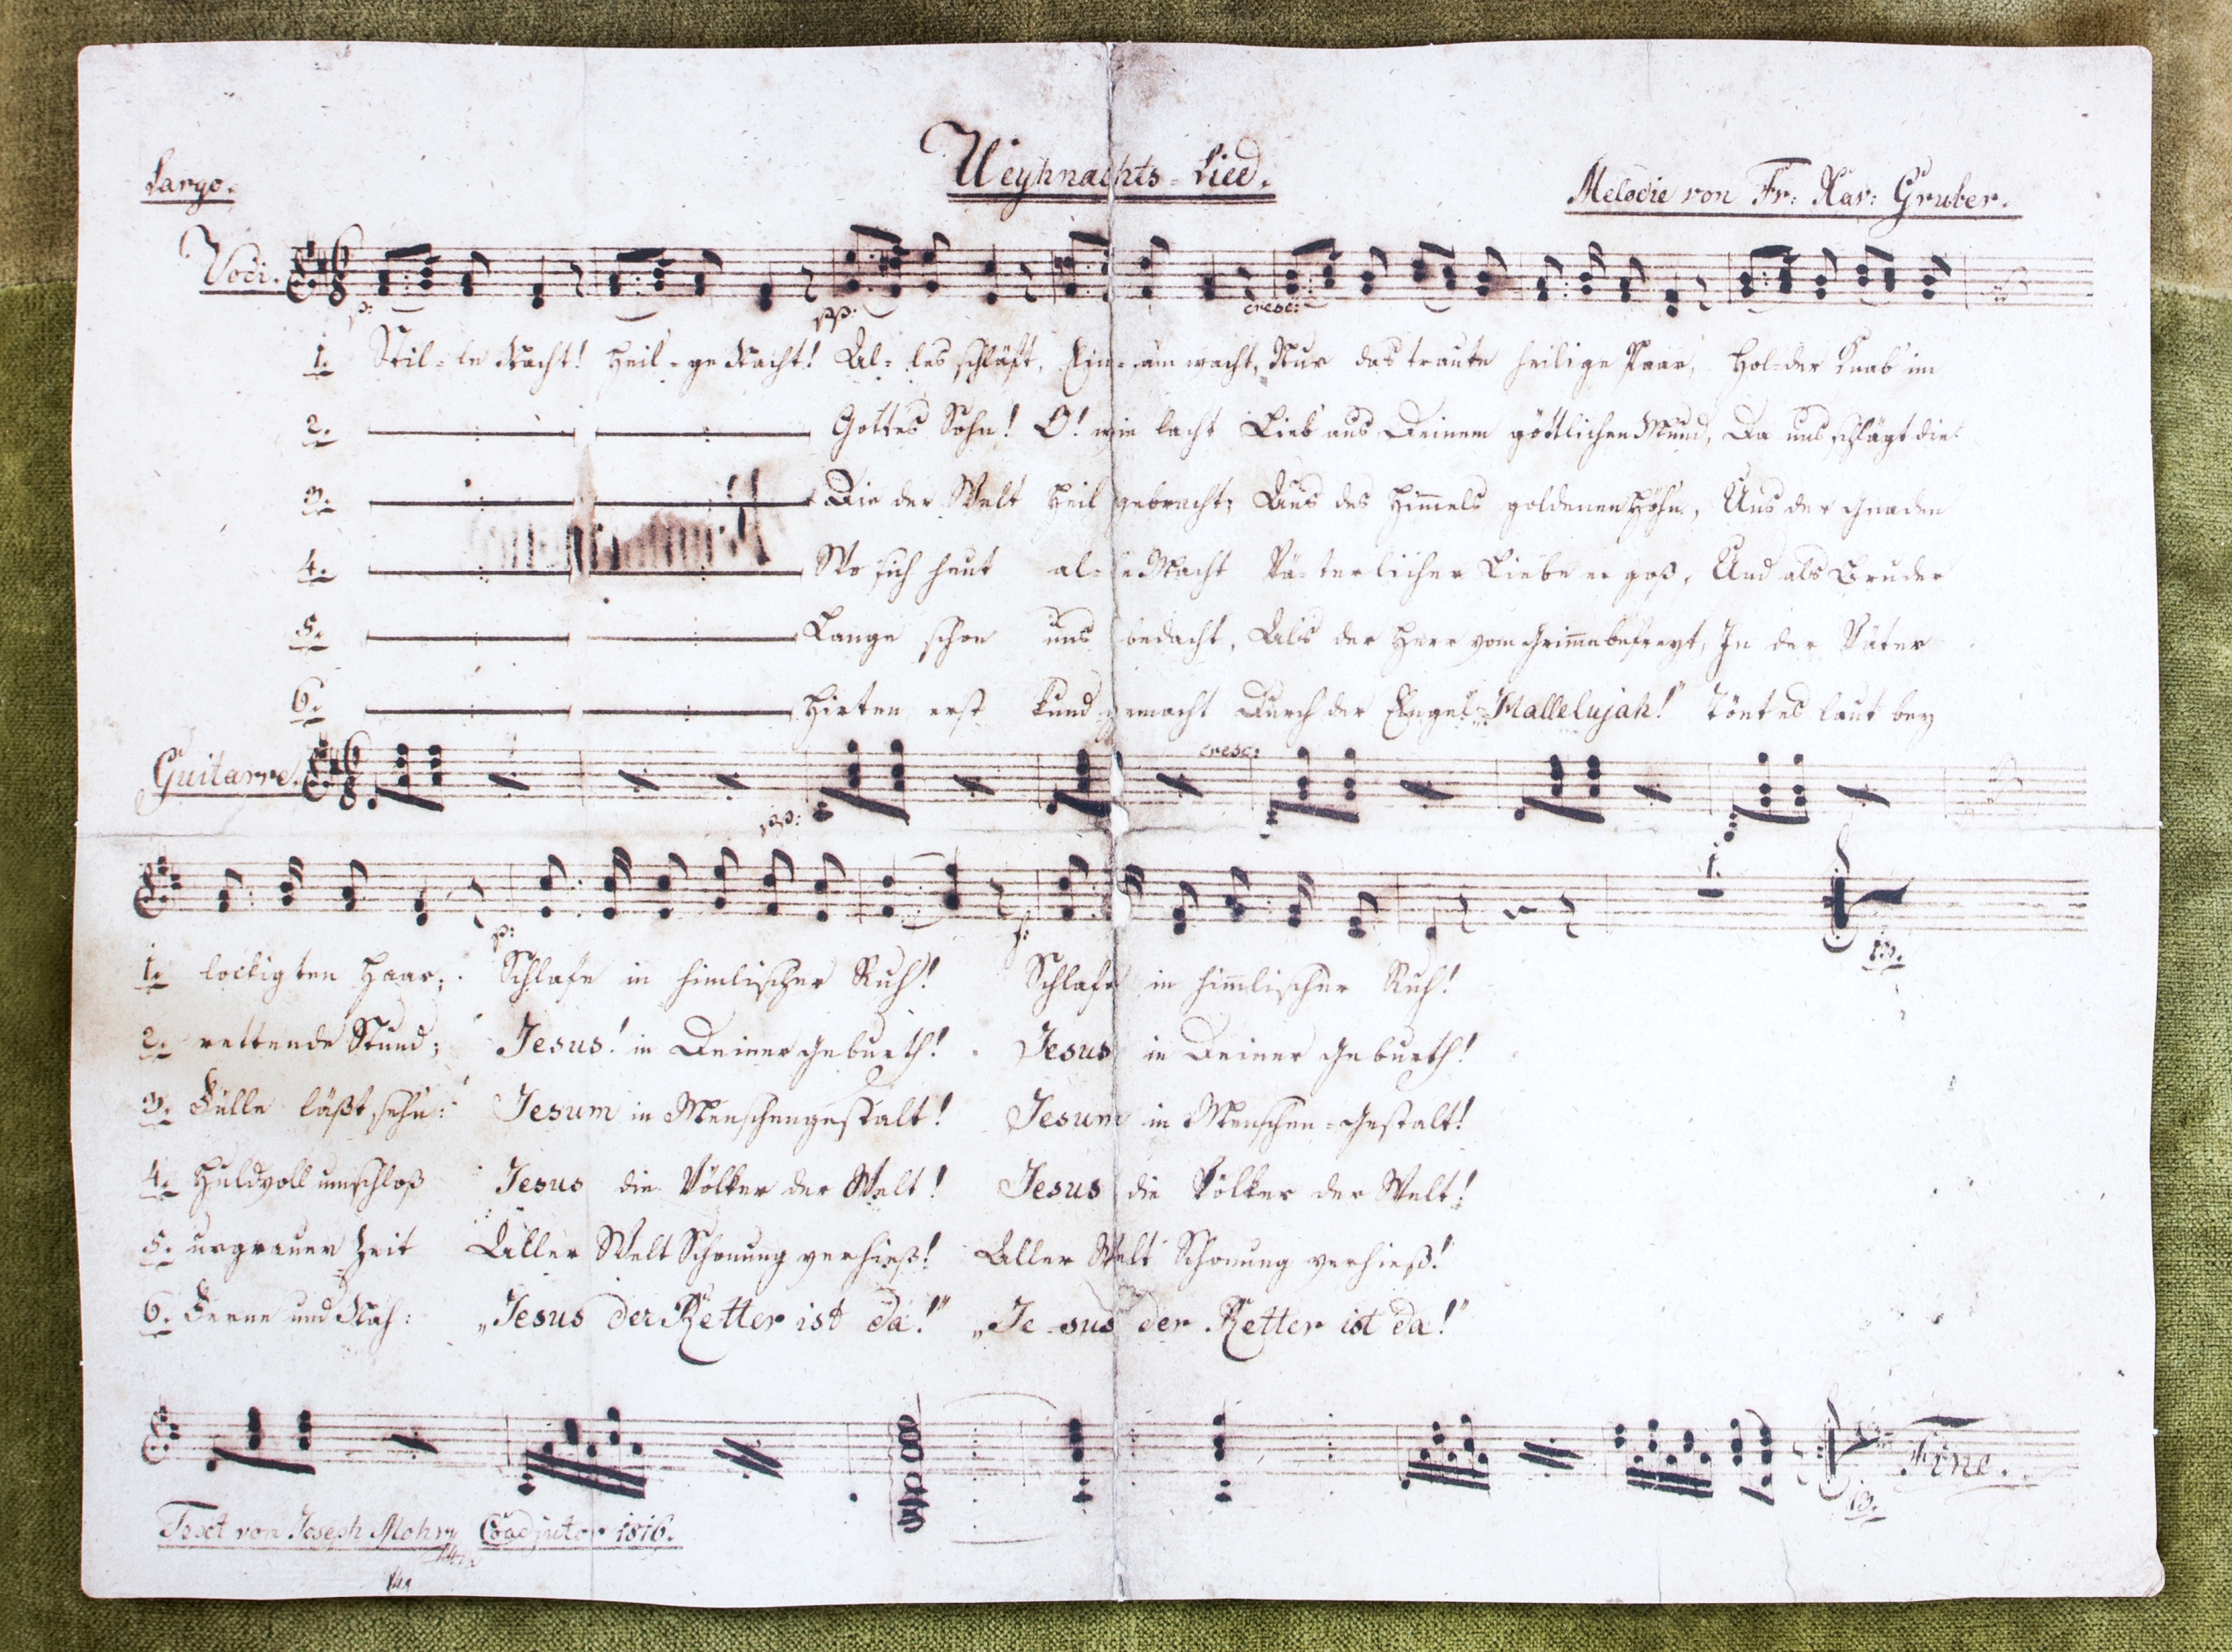 Weyhnachts-Lied.
Largo.
Melodie von Fr: Xav: Gruber.
Voci.
p: pp: cresc:
1. Stil-le Nacht! Heil-ge Nacht! Al-les schläft, Ein-sam wacht, Nur das traute heilige Paar, Hol-der Knab' im
2. Gottes Sohn! O! wie lacht Lieb' aus Deinem göttlichen Mund, Da uns schlägt die
3. Die der Welt Heil gebracht; Aus des Him̄els goldenen Höhn, Uns der Gnaden
4. Wo sich heut al-le Macht Vä-terlicher Liebe ergoß, Und als Bruder
5. Lange schon uns bedacht, Als der Herr vom Grim̄e befreyt, In der Väter
6. Hirten erst kund gemacht Durch der Engel „Hallelujah!" Tönt es laut bey
cresc:
Guitarre.
pp:
1.
p: f:
1. lockigten Haar; Schlafe in himlischer Ruh! Schlafe in him̄lischer Ruh!
2. rettende Stund; Jesus! in Deiner Geburth! Jesus in Deiner Geburth!
3. Fülle läßt sehn: Jesum in Menschengestalt! Jesum in Menschen-Gestalt!
4. Huldvoll umschloß Jesus die Völker der Welt! Jesus die Völker der Welt!
5. urgrauer Zeit Aller Welt Schonung verhieß! Aller Welt Schonung verhieß!
6. Ferne und Nah: „Jesus der Retter ist da!" „Jesus der Retter ist da!"
Fine.
Text von Joseph Mohr Coadjutor 1816.